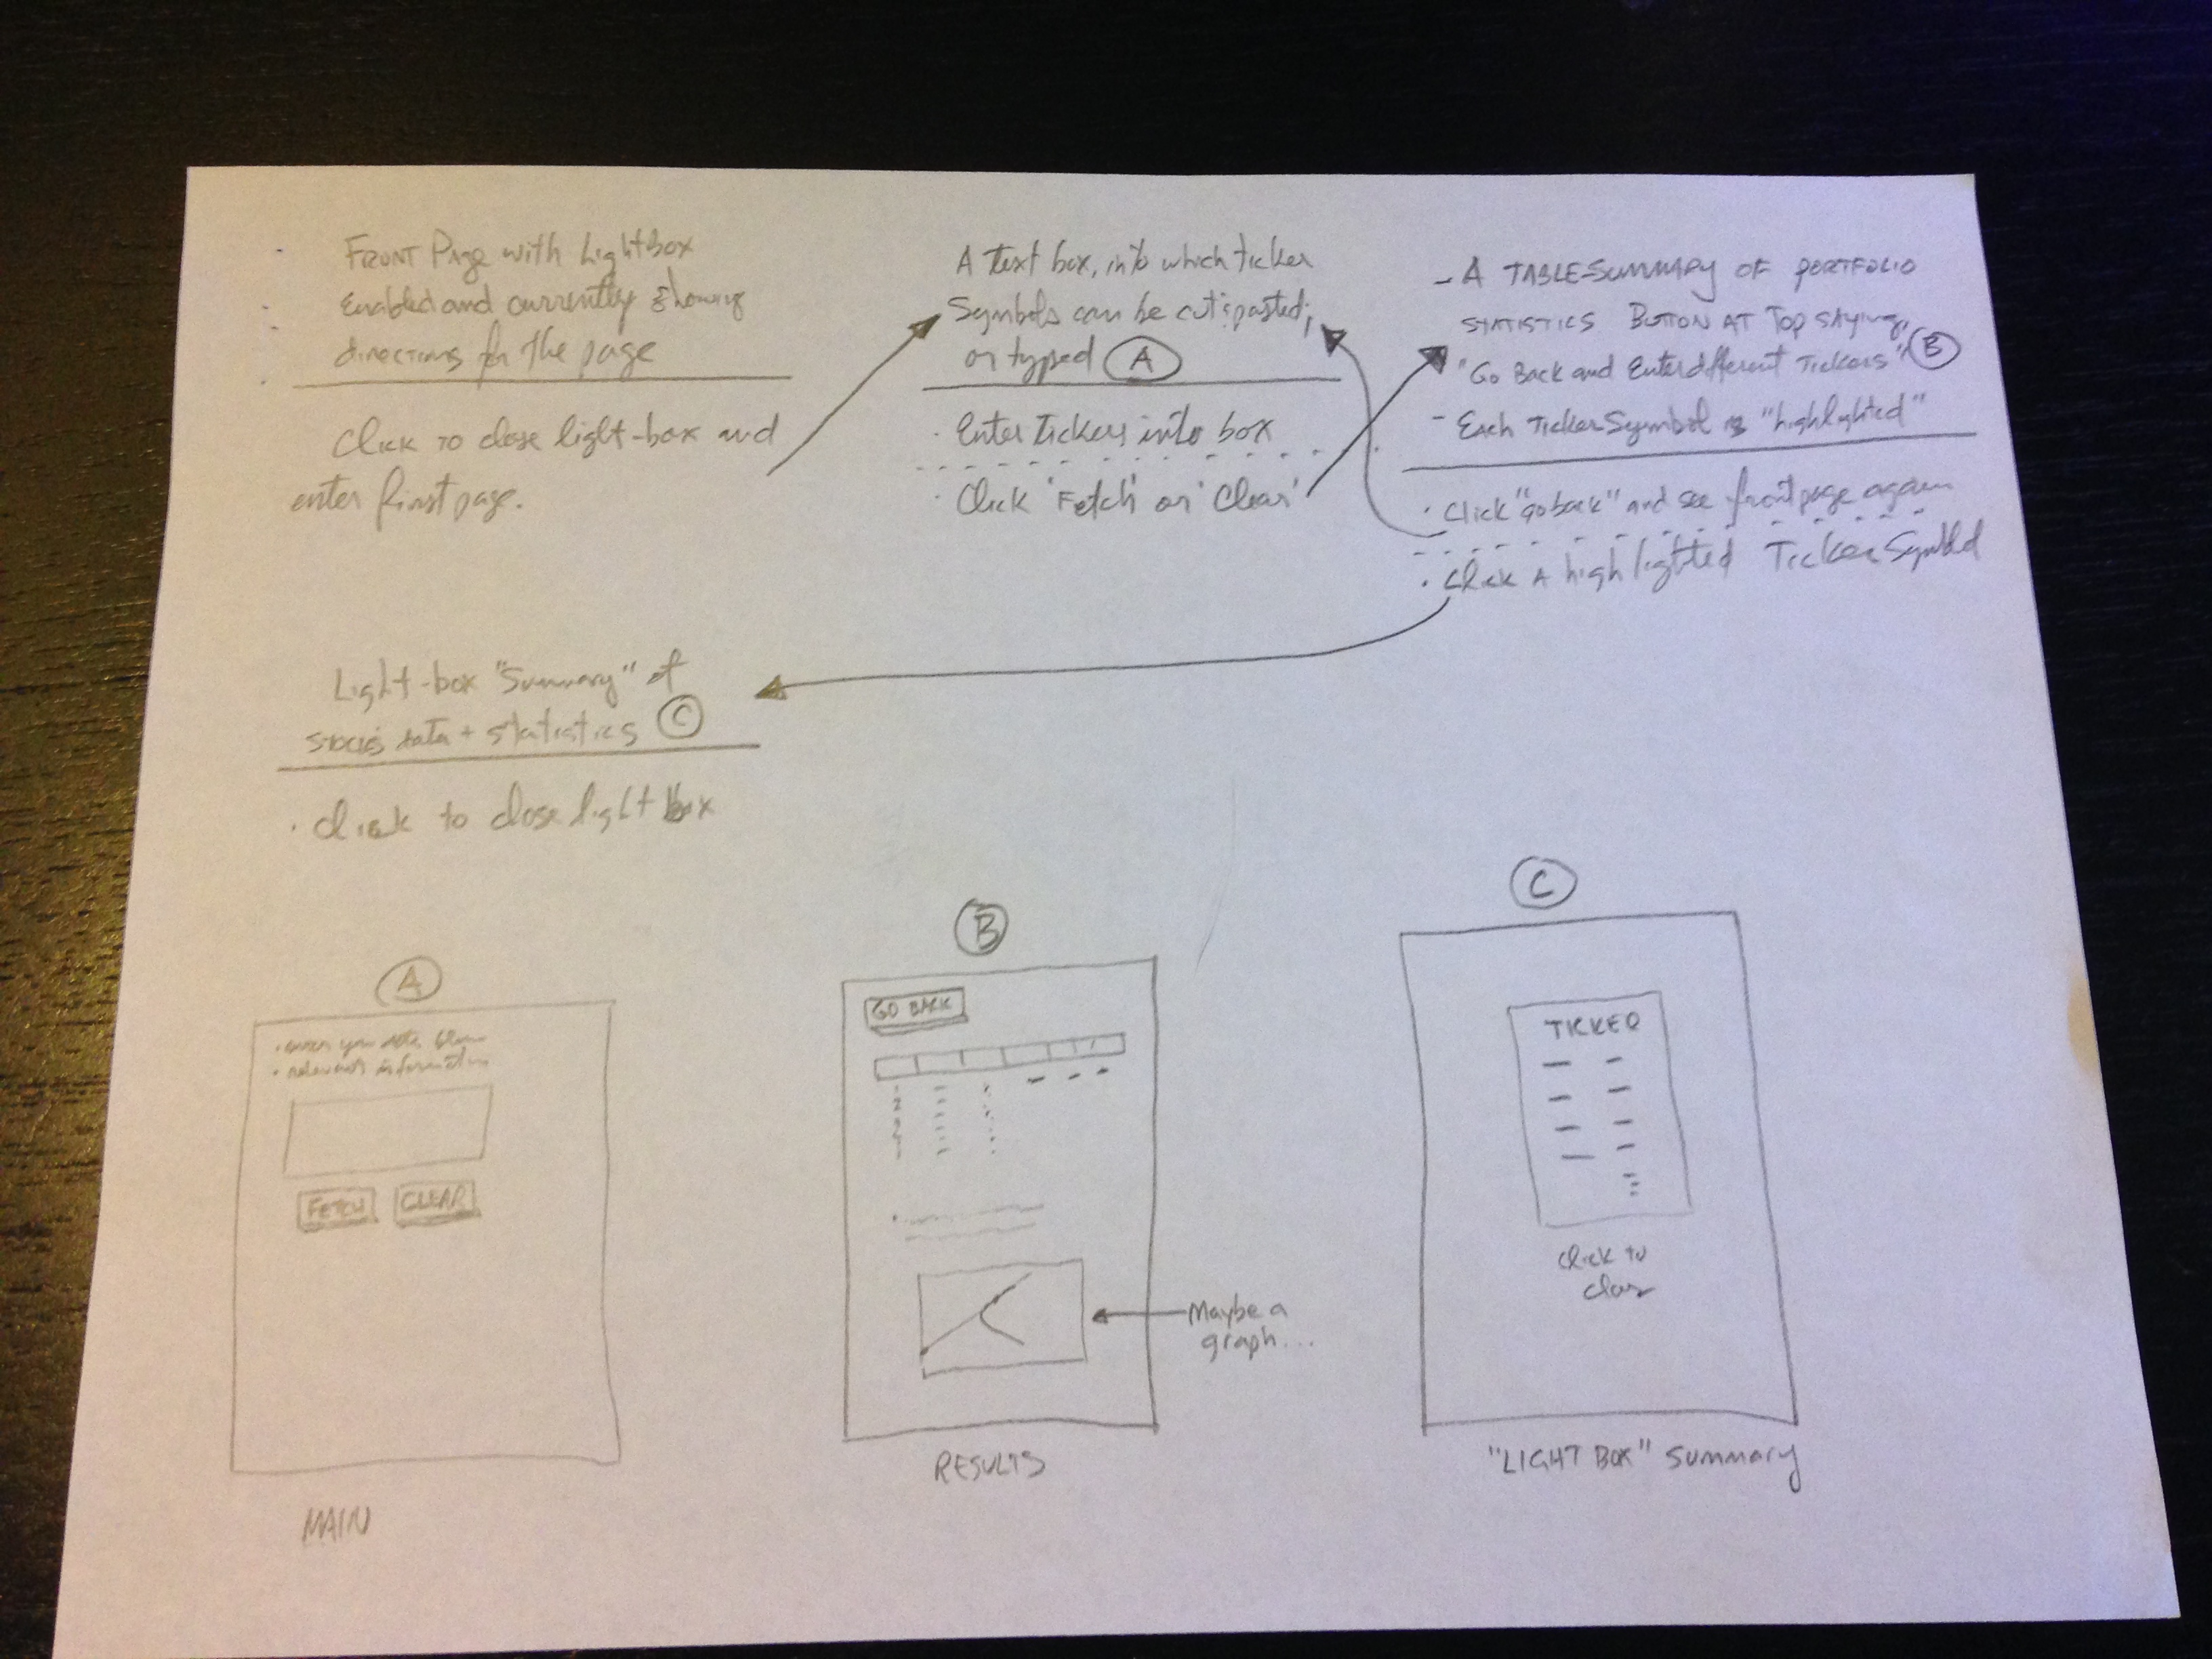 FRONT Page with Lightbox
Enabled and currently showing
directions for the page
Click to close light-box and
enter first page.
A text box, into which ticker
Symbols can be cut & pasted,
or typed A
· Enter Tickers into box
· Click 'Fetch' or 'Clear'
- A TABLE-SUMMARY OF PORTFOLIO
STATISTICS BUTTON AT TOP SAYING,
"Go Back and Enter different Tickers" B
- Each Ticker Symbol is "highlighted"
· Click "go back" and see front page again
· Click A highlighted Ticker Symbol
Light-box "Summary" of
stocks data + statistics C
· Click to close light box
A
relevant information
FETCH CLEAR
MAIN
B
GO BACK
Maybe a
graph...
RESULTS
C
TICKER
Click to
close
"LIGHT BOX" Summary